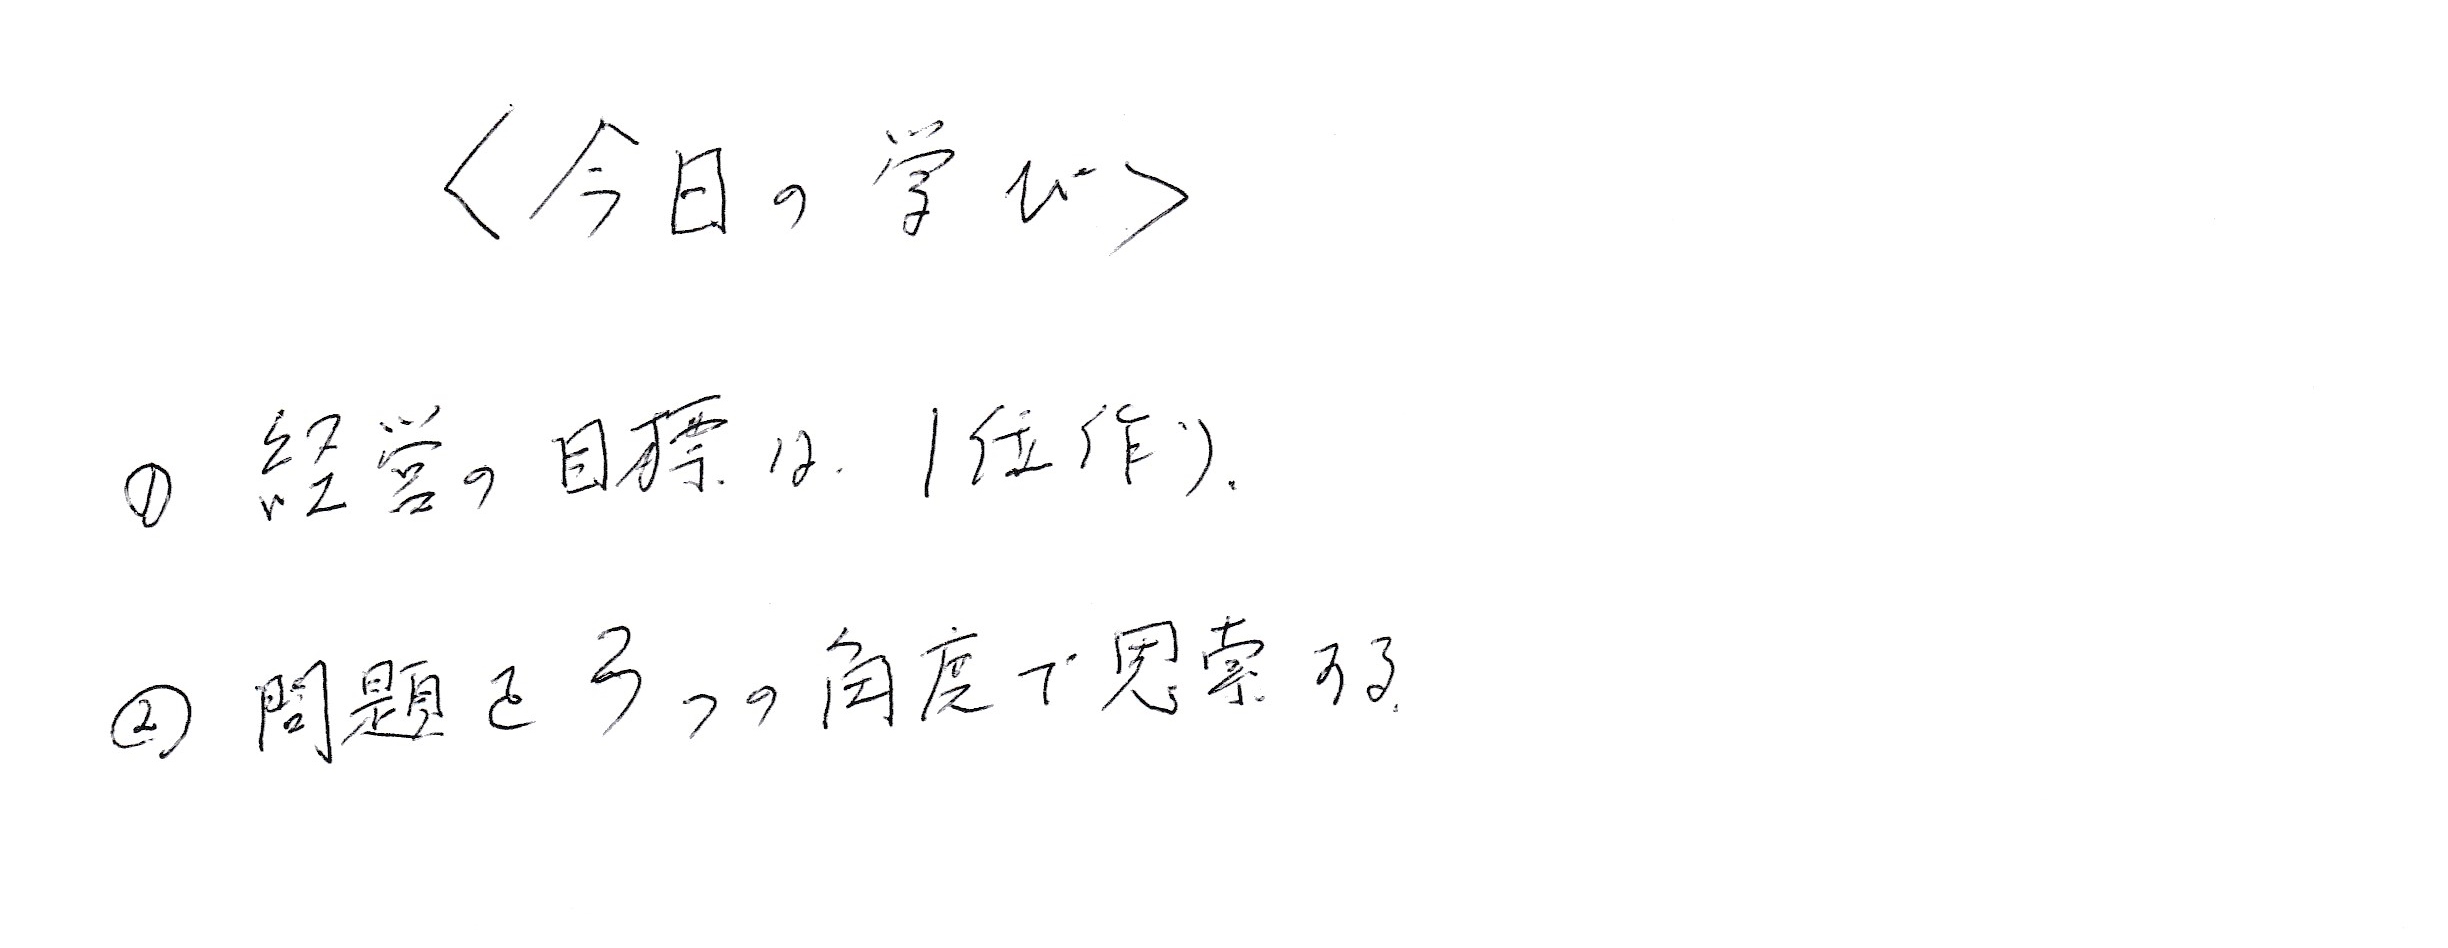 〈今日の学び〉
① 経営の目標は、1位作り。
② 問題を3つの角度で思索する。